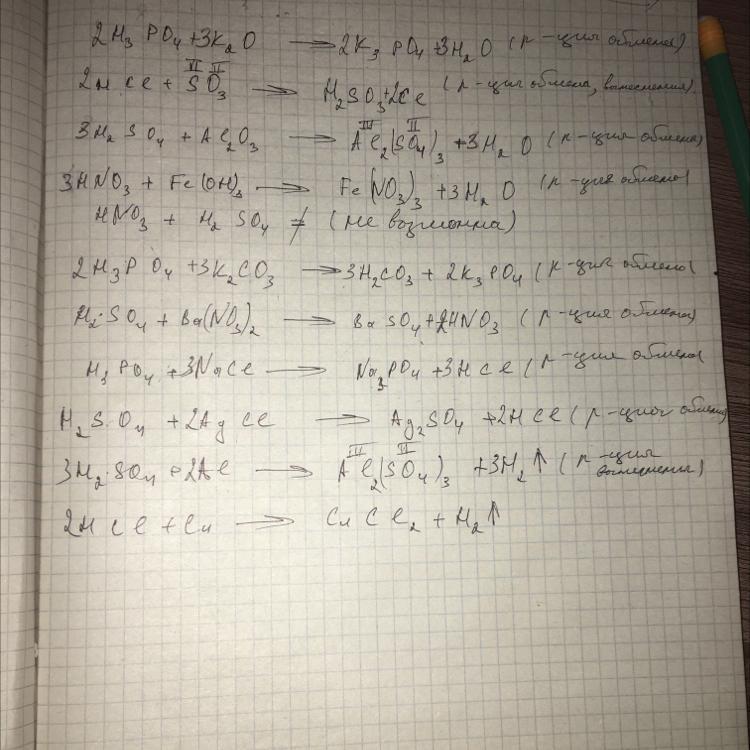 2H₃PO₄ + 3K₂O → 2K₃PO₄ + 3H₂O (р-ция обмена)
2HCl + SO₃ → H₂SO₃ + 2Cl (р-ция обмена, вытеснения)
VI II
3H₂SO₄ + Al₂O₃ → Al₂(SO₄)₃ + 3H₂O (р-ция обмена)
III II
3HNO₃ + Fe(OH)₃ → Fe(NO₃)₃ + 3H₂O (р-ция обмена
HNO₃ + H₂SO₄ ≠ (не возможна)
2H₃PO₄ + 3K₂CO₃ → 3H₂CO₃ + 2K₃PO₄ (р-ция обмена
H₂SO₄ + Ba(NO₃)₂ → BaSO₄ + 2HNO₃ (р-ция обмена)
H₃PO₄ + 3NaCl → Na₃PO₄ + 3HCl (р-ция обмена
H₂SO₄ + 2AgCl → Ag₂SO₄ + 2HCl (р-ция обмена
III II
3H₂SO₄ + 2Al → Al₂(SO₄)₃ + 3H₂↑ (р-ция вытеснения)
2HCl + Cu → CuCl₂ + H₂↑